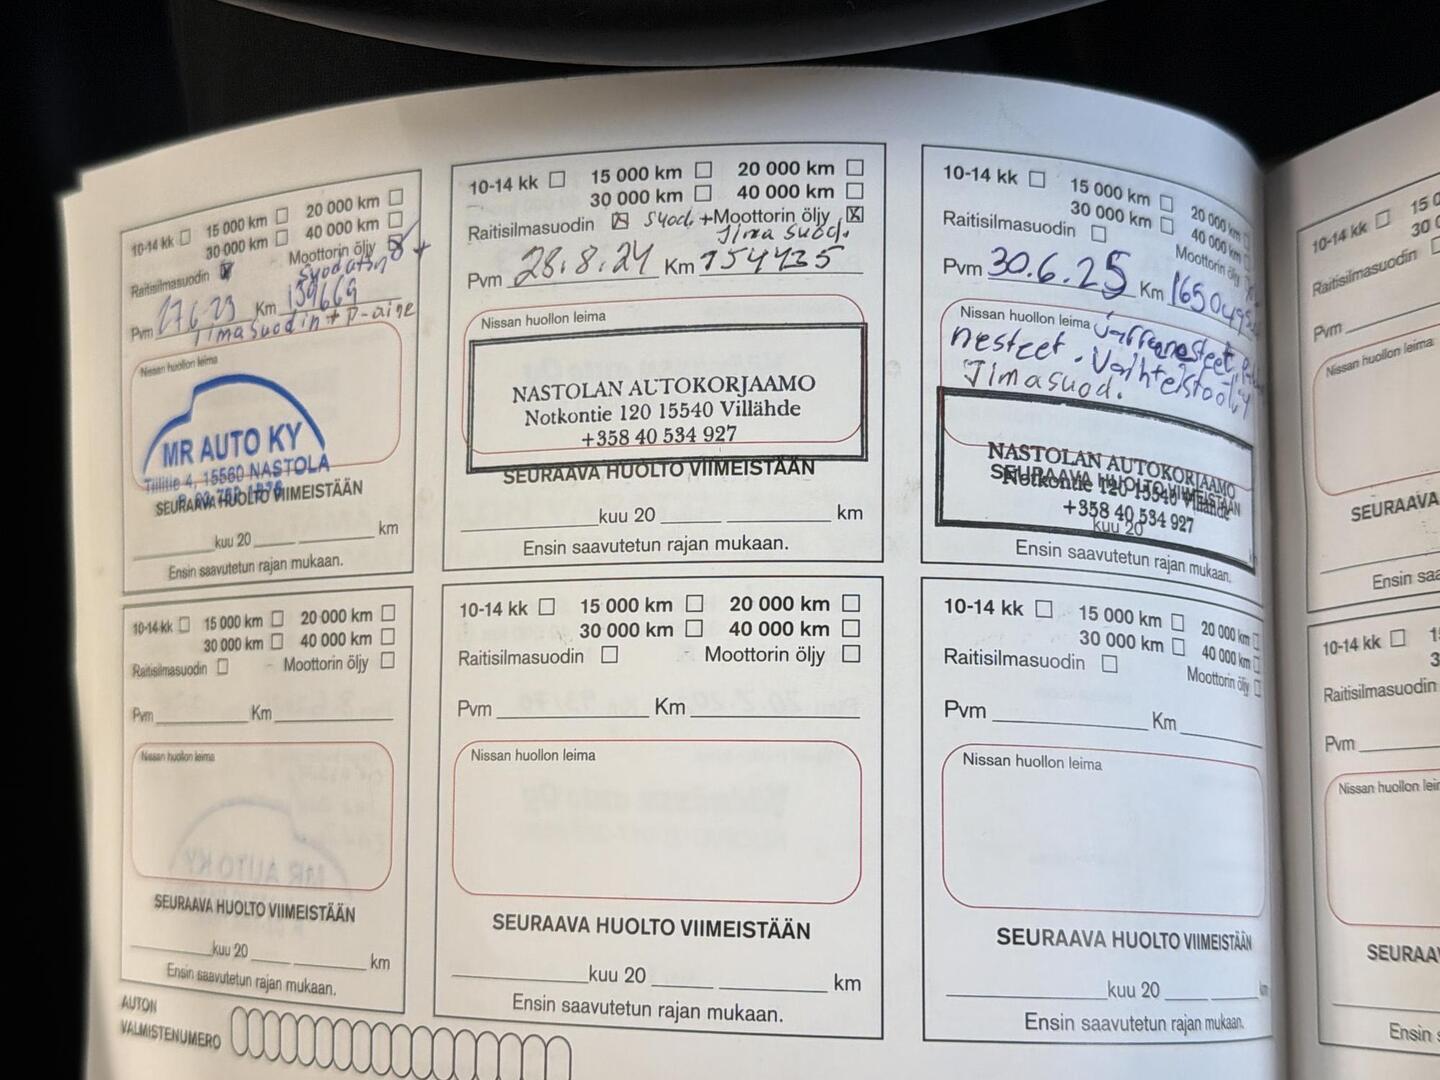 10-14 kk 15 000 km 20 000 km
30 000 km 40 000 km
Raitisilmasuodin Moottorin öljy +
Pvm 27.6.23 Km 139669
ilmasuodin + P-aine
Nissan huollon leima
MR AUTO KY
Tillitie 4, 15560 NASTOLA
SEURAAVA HUOLTO VIIMEISTÄÄN
kuu 20 km
Ensin saavutetun rajan mukaan.
10-14 kk 15 000 km 20 000 km
30 000 km 40 000 km
Raitisilmasuodin X Syod. +Moottorin öljy X
ilma suod.
Pvm 28.8.24 Km 154435
Nissan huollon leima
NASTOLAN AUTOKORJAAMO
Notkontie 120 15540 Villähde
+358 40 534 927
SEURAAVA HUOLTO VIIMEISTÄÄN
kuu 20 km
Ensin saavutetun rajan mukaan.
10-14 kk 15 000 km 20 000 km
30 000 km 40 000 km
Raitisilmasuodin Moottorin öljy
Pvm 30.6.25 Km
Nissan huollon leima Jarrunesteet
nesteet. Vaihteistoöljy
Ilmasuod.
NASTOLAN AUTOKORJAAMO
SEURAAVA HUOLTO VIIMEISTÄÄN
Notkontie 120 15540 Villähde
+358 40 534 927
kuu 20
Ensin saavutetun rajan mukaan.
10-14 kk
Raitisilmasuodin
Pvm
Nissan huollon leima
SEURAAVA
Ensin
10-14 kk 15 000 km 20 000 km
30 000 km 40 000 km
Raitisilmasuodin Moottorin öljy
Pvm Km
Nissan huollon leima
MR AUTO KY
SEURAAVA HUOLTO VIIMEISTÄÄN
kuu 20 km
Ensin saavutetun rajan mukaan.
10-14 kk 15 000 km 20 000 km
30 000 km 40 000 km
Raitisilmasuodin Moottorin öljy
Pvm Km
Nissan huollon leima
SEURAAVA HUOLTO VIIMEISTÄÄN
kuu 20 km
Ensin saavutetun rajan mukaan.
10-14 kk 15 000 km 20 000 km
30 000 km 40 000 km
Raitisilmasuodin Moottorin öljy
Pvm Km
Nissan huollon leima
SEURAAVA HUOLTO VIIMEISTÄÄN
kuu 20 km
Ensin saavutetun rajan mukaan.
10-14 kk
Raitisilmasuodin
Pvm
Nissan huollon
Ensin
AUTON
VALMISTENUMERO